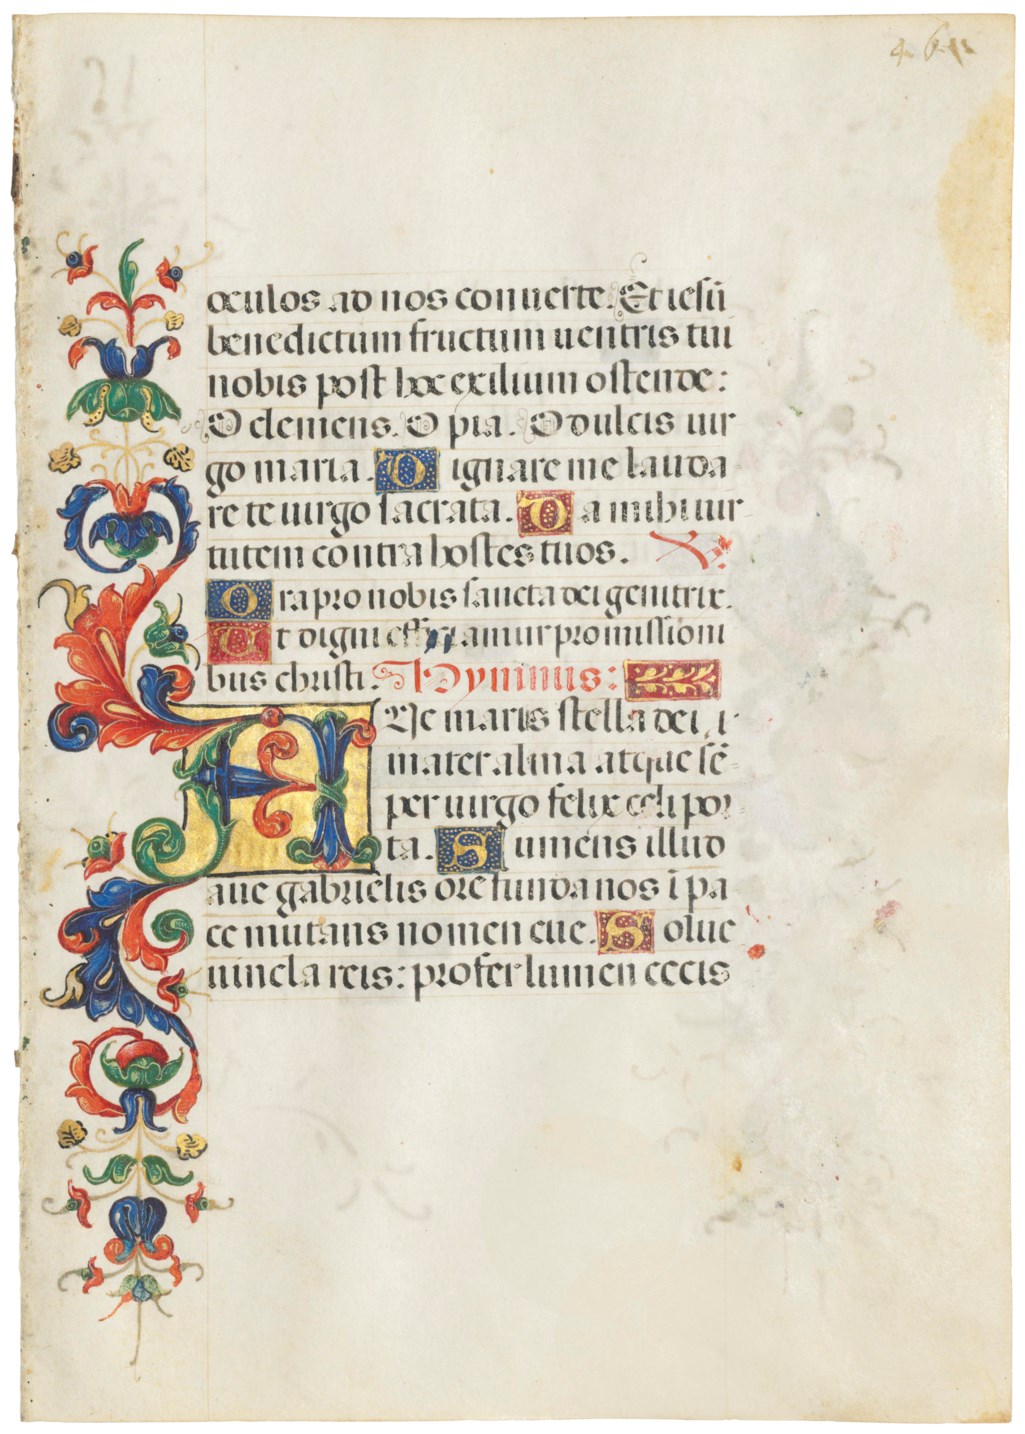 46
oculos ad nos conuerte. Et iesū
benedictum fructum uentris tui
nobis post hoc exilium ostende:
O clemens. O pia. O dulcis uir
go maria. Dignare me lauda
re te uirgo sacrata. Da mihi uir
tutem contra hostes tuos. V.
Ora pro nobis sancta dei genitrix.
Ut digni efficiamur promissioni
bus christi. Hymnus:
AVe maris stella dei
mater alma atque sē
per uirgo felix celi por
ta. Sumens illud
aue gabrielis ore funda nos ī pa
ce mutans nomen eue. Solue
uincla reis: profer lumen cecis